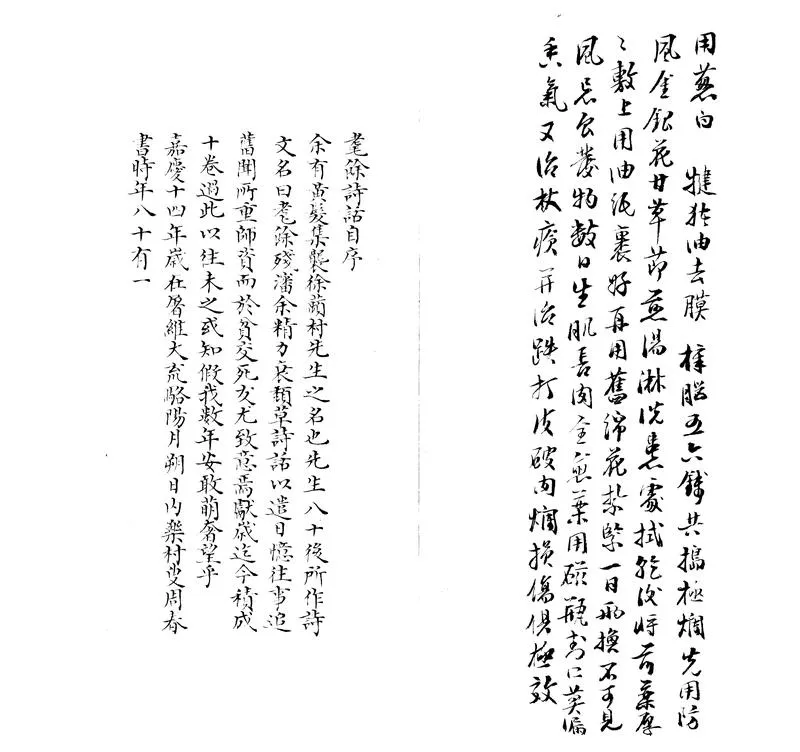 用葱白 犍猪油去膜 樟腦五六錢共搗極爛先用防
風金銀花甘草節煎湯淋洗患處拭乾後將前藥厚
〻敷上用油紙裹好再用舊綿花紮緊一日兩換不可見
風忌食發物數日生肌長肉全愈藥用磁瓶封口莫漏
香氣又治杖瘡并治跌打皮破肉爛損傷俱極效
耄餘詩話自序
余有黃髮集襲徐蘭村先生之名也先生八十後所作詩
文名曰耄餘殘瀋余精力衰頹草詩話以遣日憶往事追
舊聞所重師資而於貧交死友尤致意焉獻歲迄今積成
十卷過此以往未之或知假我數年安敢萌奢望乎
嘉慶十四年歲在屠維大荒駱陽月朔日內樂村叟周春
書時年八十有一